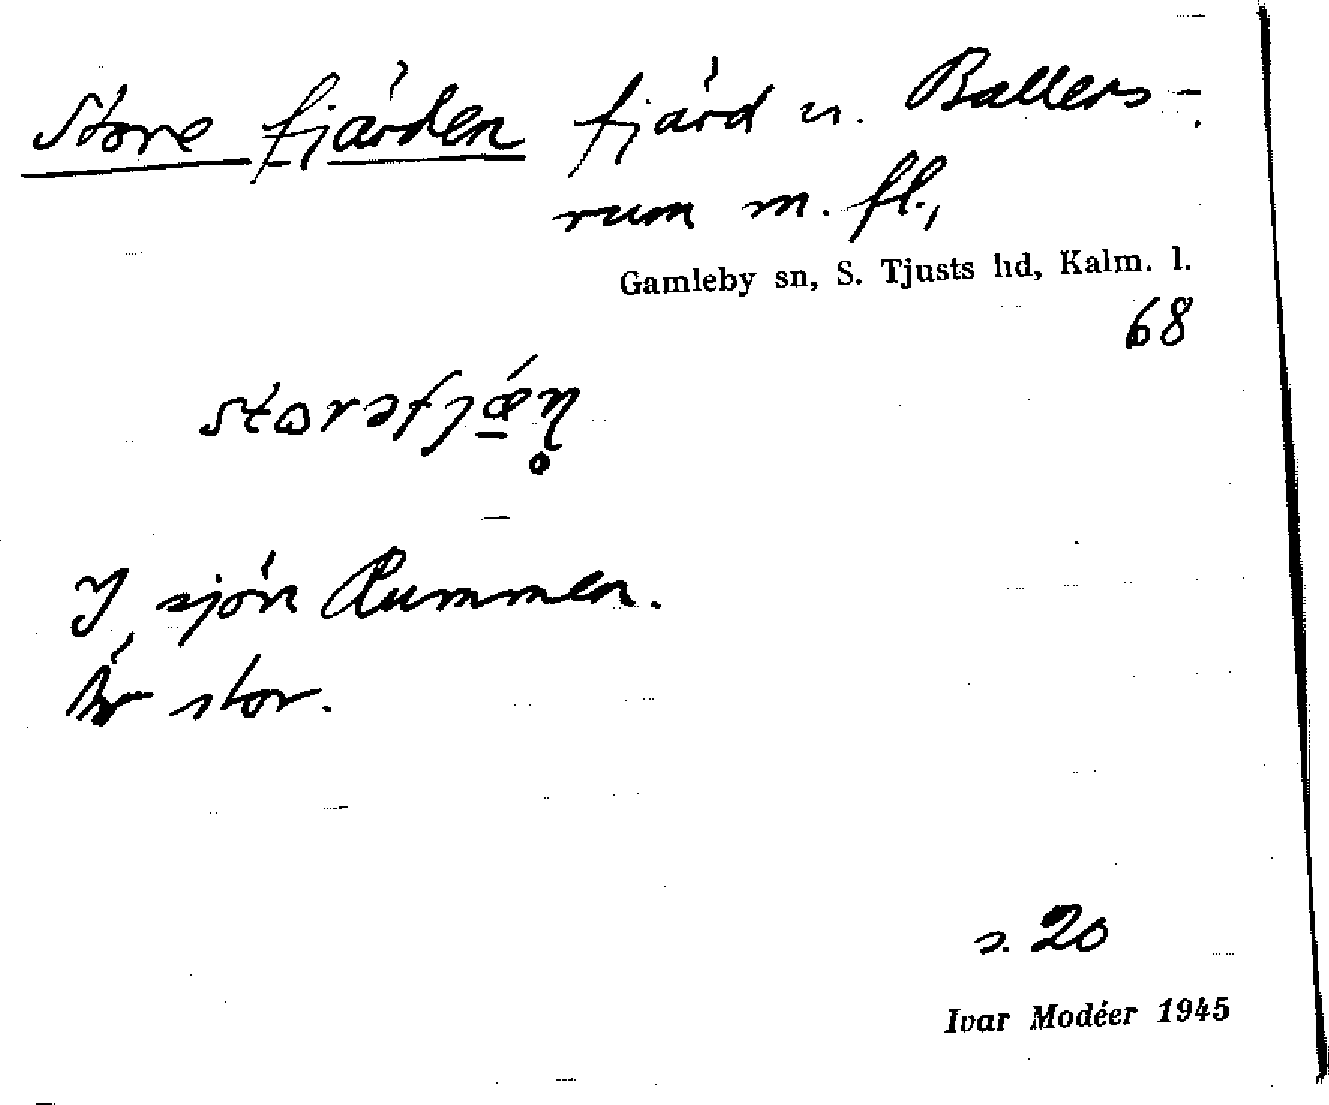 Store fjärden fjärd u. Ballers-
rum m. fl.,
Gamleby sn, S. Tjusts hd, Kalm. l.
68
I sjön Rummen.
Är stor.
s. 20
Ivar Modéer 1945